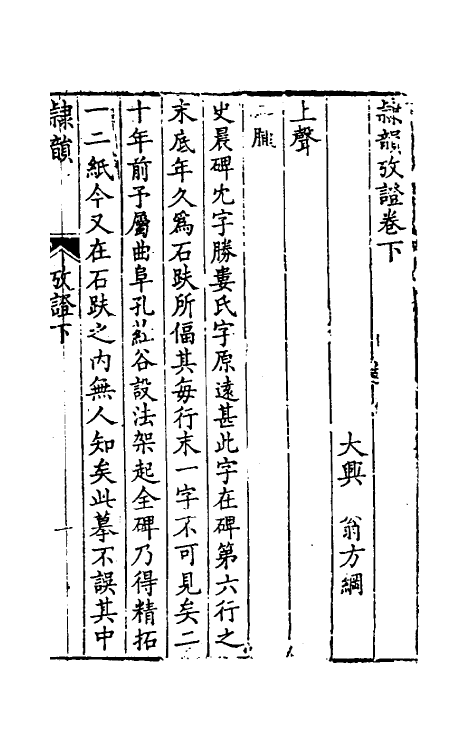 隸韻攷證卷下
大興 翁方綱
上聲
二腫
史晨碑尤字勝婁氏字原遠甚此字在碑第六行之
末底年久爲石趺所偪其每行末一字不可見矣二
十年前予屬曲阜孔葒谷設法架起全碑乃得精拓
一二紙今又在石趺之內無人知矣此摹不誤其中
隸韻
攷證下
一